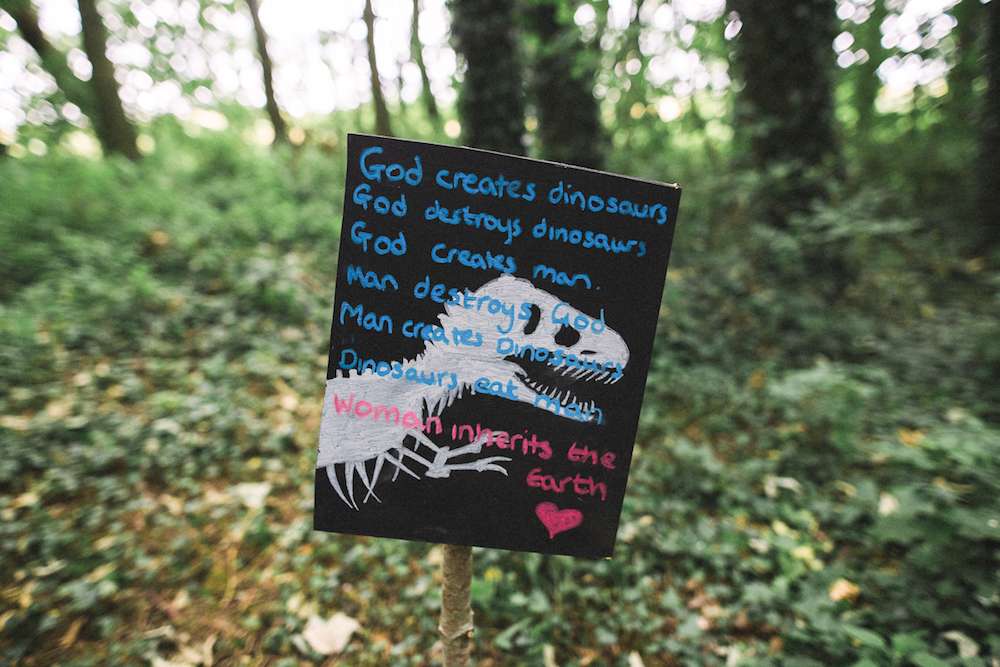 God creates dinosaurs
God destroys dinosaurs
God creates man.
Man destroys God
Man creates Dinosaurs
Dinosaurs eat man
Woman inherits the
Earth